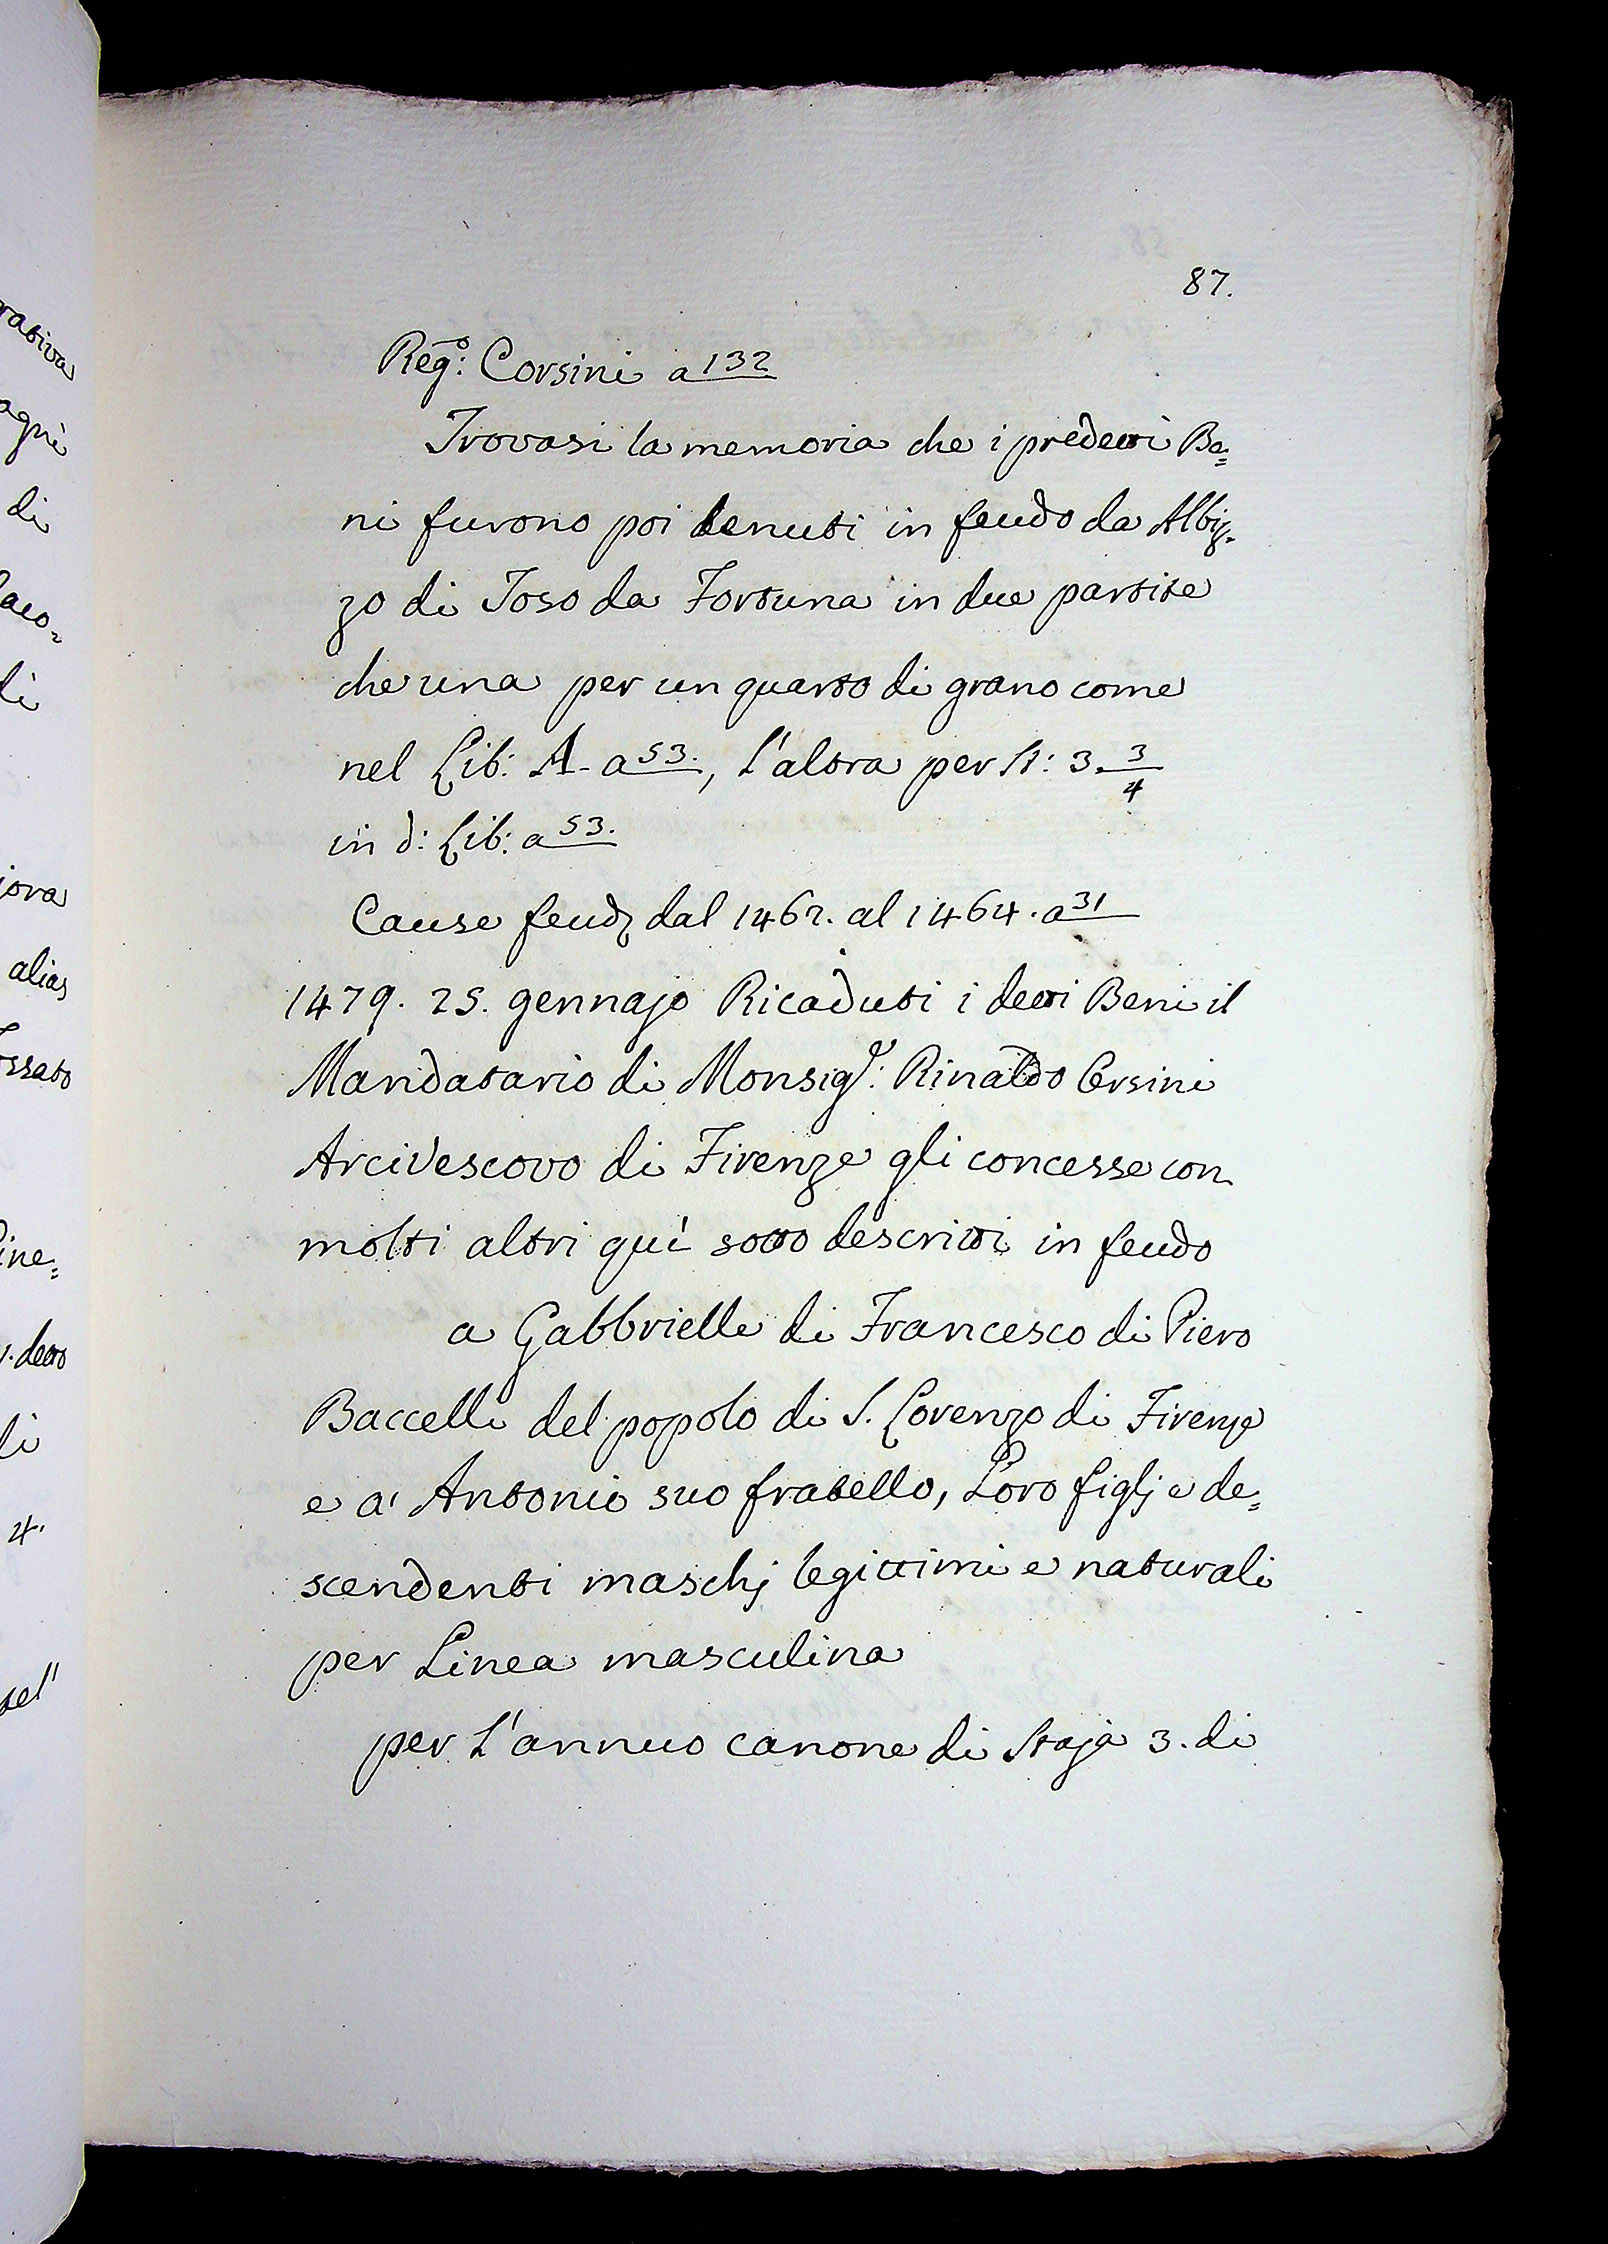 rativa
agni
di
di
iora
alias
ossato
ine=
detto
li
4.
tel'
87.
Reg.º: Corsini a 132
Trovasi la memoria che i predetti Be=
ni furono poi tenuti in feudo da Albiz=
zo di Toso da Fortuna in due partite
che una per un quarto di grano come
nel Lib: A. a 53., l'altra per St: 3. 3/4
in d: Lib: a 53.
Cause feud. dal 1462. al 1464. a 31
1479. 25. gennajo Ricaduti i detti Beni il
Mandatario di Monsig.e: Rinaldo Orsini
Arcivescovo di Firenze gli concesse con
molti altri quì sotto descritti in feudo
a Gabbriello di Francesco di Piero
Baccelli del popolo di S. Lorenzo di Firenze
e a' Antonio suo fratello, Loro figlj e de=
scendenti maschj legittimi e naturali
per Linea masculina
per L'annuo canone di Staja 3. di